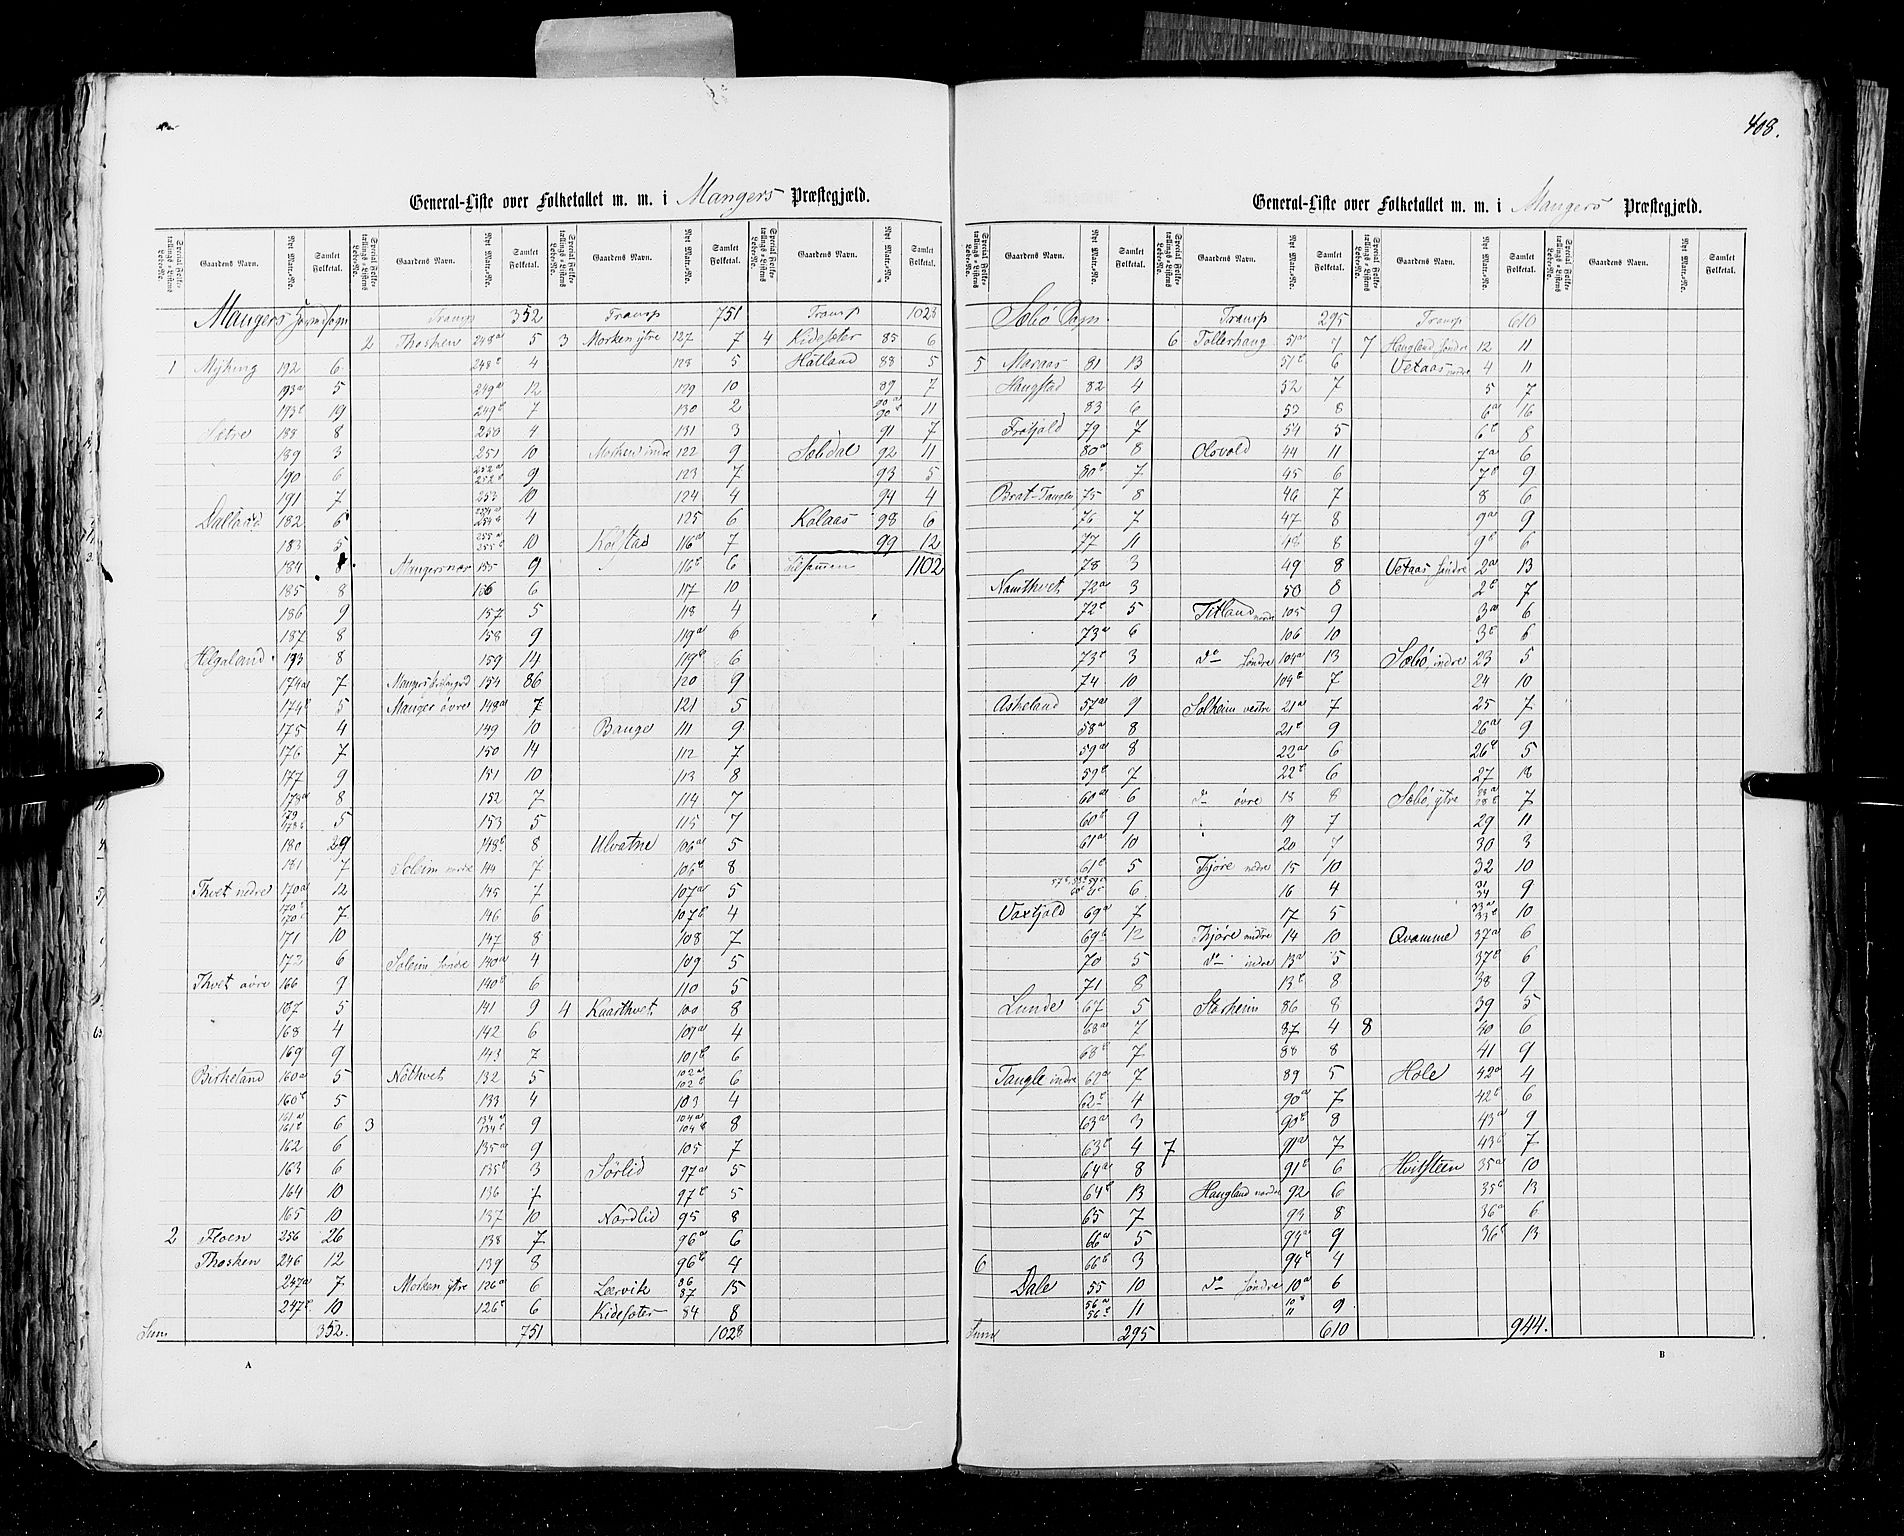 408.
General-Liste over Folketallet m. m. i Mangers Præstegjæld.
Special Folketællings-Listens Løbe-No. Gaardens Navn. Nyt Matr.-No. Samlet Folketal. Special Folketællings-Listens Løbe-No. Gaardens Navn. Nyt Matr.-No. Samlet Folketal. Special Folketællings-Listens Løbe-No. Gaardens Navn. Nyt Matr.-No. Samlet Folketal. Special Folketællings-Listens Løbe-No. Gaardens Navn. Nyt Matr.-No. Samlet Folketal.
Mangers Transp 352 Transp 751 Transp 1028
2 Thosken 248a 5 3 Morken ytre 127 7 4 Kidesæter 85 6
1 Myking 192 6 248b 4 128 5 Hatland 88 5
193a 5 249a 12 129 10 89 7
193b 19 249b 7 130 2 90a 90b 11
Sætre 188 8 250 4 131 3 91 7
189 3 251 10 Morken indre 122 9 Sæbdal 92 11
190 6 252a 252b 9 123 7 93 5
191 7 253 10 124 4 94 4
Dalland 182 6 254a 254b 4 125 6 Kolaas 98 6
183 5 255a 255b 10 Kolstad 116a 7 99 12
184 8 Mangersnæs 155 9 116b 6 Tilsammen 1102
185 8 156 6 117 10
186 9 157 5 118 4
187 8 158 9 119a 6
Helgaland 173 8 159 14 119b 6
174a 7 154 86 120 9
174b 5 Manger øvre 148a 7 121 5
175 4 149 10 Bauge 111 9
176 7 150 14 112 7
177 9 151 10 113 8
178a 8 152 7 114 7
179 178b 5 153 5 115 7
180 29 148b 8 Ulvatne 106a 5
181 7 Soleim nordre 144 7 106b 8
Thvet nedre 170a 12 145 7 107a 5
170b 7 146 6 107b 4
171 10 147 8 108 7
172 6 Soleim søndre 140a 4 109 5
Thvet øvre 166 9 140b 6 110 5
167 5 141 9 4 Kaarthvet 100 8
168 4 142 6 101a 4
169 9 143 7 101b 6
Birkeland 160a 5 Nöthvet 132 5 102a 102b 6
160b 5 133 4 103 4
161a 161b 6 3 134a 134b 9 104a 104b 8
162 6 135a 9 105 7
163 6 135b 3 Sörlid 97a 5
164 10 136 7 97b 5
165 10 137 10 Nordlid 95 8
2 Floen 256 26 138 7 96a 6
Thosken 246 12 139 8 96b 4
247a 7 Morken ytre 126a 6 Leervik 86 87 15
247b 10 126b 6 Kidesæter 84 8
Sum 352. 751 1028
A
General-Liste over Folketallet m. m. i Mangers Præstegjæld.
Special Folketællings-Listens Løbe-No. Gaardens Navn. Nyt Matr.-No. Samlet Folketal. Special Folketællings-Listens Løbe-No. Gaardens Navn. Nyt Matr.-No. Samlet Folketal. Special Folketællings-Listens Løbe-No. Gaardens Navn. Nyt Matr.-No. Samlet Folketal. Special Folketællings-Listens Løbe-No. Gaardens Navn. Nyt Matr.-No. Samlet Folketal. Nyt Matr.-No. Samlet Folketal.
Sæbö Sogn. Transp 295 Transp 610
6 Tollerhaug 51a 7 7 Haugland søndre 12 11
5 Maraas 81 13 51b 6 Vetaas nordre 4 11
Haugstad 82 4 52 7 5 7
83 6 53 8 6a 16
Frötjold 79 7 54 5 6b 8
80a 8 Olsvold 44 11 7a 6
80b 7 45 6 7b 9
Brat-Tangle 75 8 46 7 8 6
76 7 47 8 9a 9
77 11 48 8 9b 6
78 3 49 8 Vetaas søndre 2a 13
Namthvet 72a 3 50 8 2b 7
72b 5 Titland nordre 105 9 3a 6
73a 6 106 10 3b 6
73b 3 do søndre 104a 13 Sæbö, indre 23 5
74 10 104b 7 24 10
Askeland 57a 9 Solheim vestre 21a 7 25 7
58a 8 21b 9 26a 9
59a 8 22a 6 26b 5
59b 7 22b 6 27 18
60a 6 do øvre 18 8 Sæbö, ytre 28a 28b 7
60b 9 19 7 29 11
61a 10 20 7 30 3
61b 5 Tjöre nedre 15 10 32 10
6 16 4 31 34 9
Vaxtjold 69a 7 17 5 33a 33b 10
69b 12 Thjöre midtre 14 10 Qvamme 37a 6
70 5 do indre 13a 5 37b 6
71 8 13b 8 38 9
Lunde 67 5 Storheim 86 8 39 5
68a 7 87 4 8 40 6
68b 7 88 8 41 9
Tangle indre 62a 7 89 5 Hole 42a 4
62b 4 90a 7 42b 6
63a 3 90b 8 43a 9
63b 4 7 91a 7 43b 7
64a 8 91b 6 Hvitsteen 35a 10
64b 13 Haugland nordre 92 6 35b 13
65 7 93 8 36a 6
66a 5 94a 9 36b 13
6 66b 3 94b 4
Dale 55 10 do søndre 10a 6
56a 56b 11 10b 11 9
Sum 295 610 944.
B